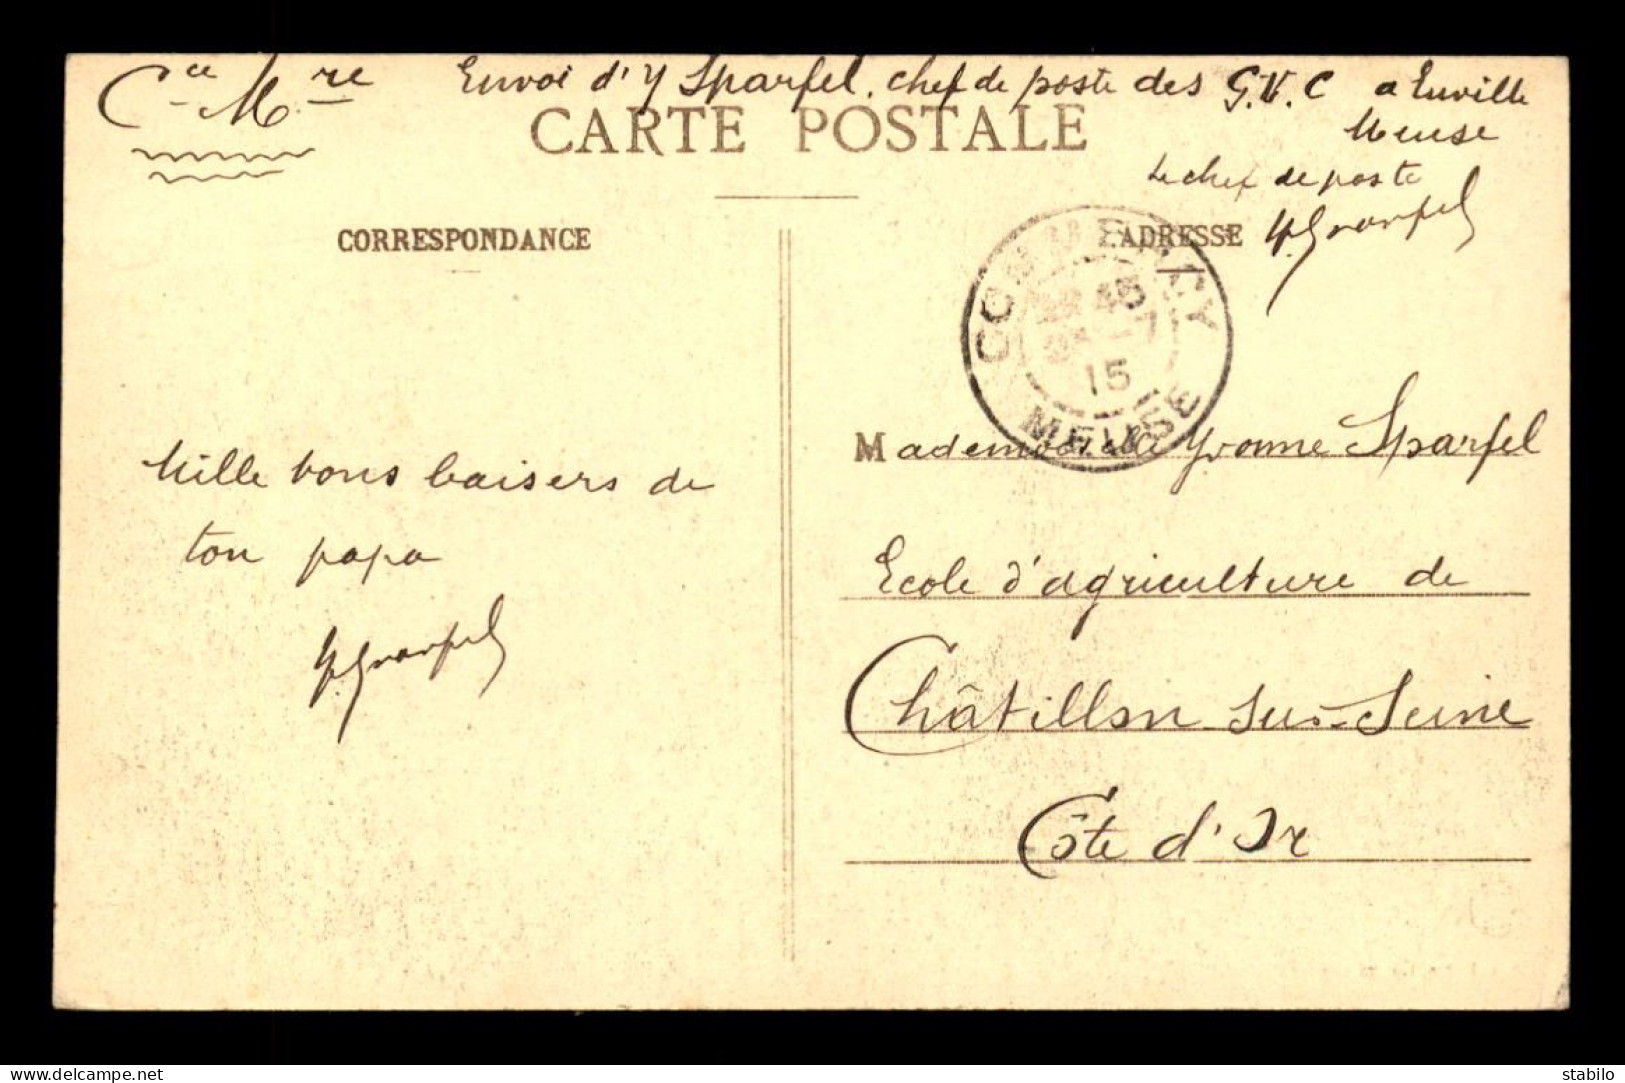 Cce Mre
Envoi d'Y Sparfel. chef de poste des G.V.C a Euville
Meuse
CARTE POSTALE
Le chef de poste
Y Sparfel
CORRESPONDANCE
ADRESSE
COMMERCY
15
MEUSE
Mille bons baisers de
ton papa
Y Sparfel
Mademoiselle Yvonne Sparfel
Ecole d'agriculture de
Châtillon sur-Seine
Côte d'Or
stabilo